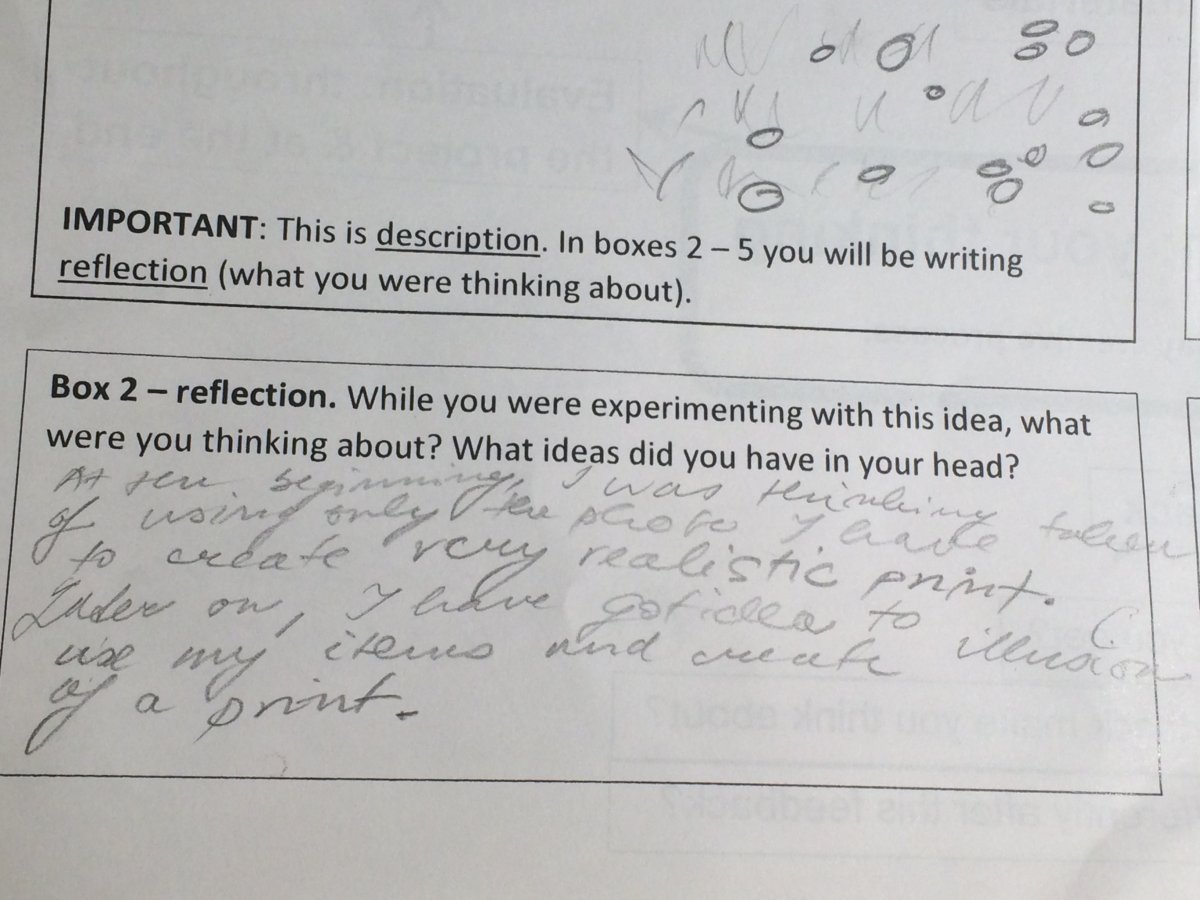 IMPORTANT: This is description. In boxes 2 – 5 you will be writing
reflection (what you were thinking about).
Box 2 – reflection. While you were experimenting with this idea, what
were you thinking about? What ideas did you have in your head?
At the beginning, I was thinking
of using only the photo I have taken
to create very realistic print.
Later on, I have got idea to
use my items and create illusion
of a print.